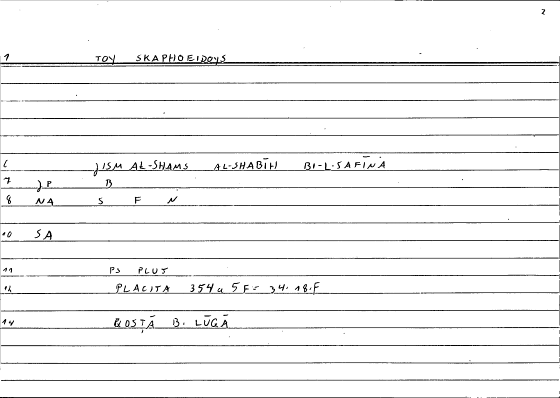 2
1 TOY SKAPHOEIDOYS
6 JISM AL-SHAMS AL-SHABĪH BI-L-SAFĪNA
7 JP B
8 NA S F N
10 SA
11 PS PLUT
12 PLACITA 354a 5 F = 34.18.F
14 QOSṬĀ B. LŪQĀ